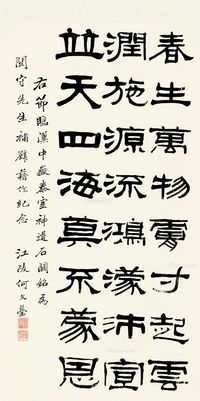 春生萬物膚寸起雲
潤施源流鴻濛沛宣
並天四海莫不蒙恩
右節臨漢中嶽泰室神道石闕銘為
守先生補壁藉作紀念 江陵何文